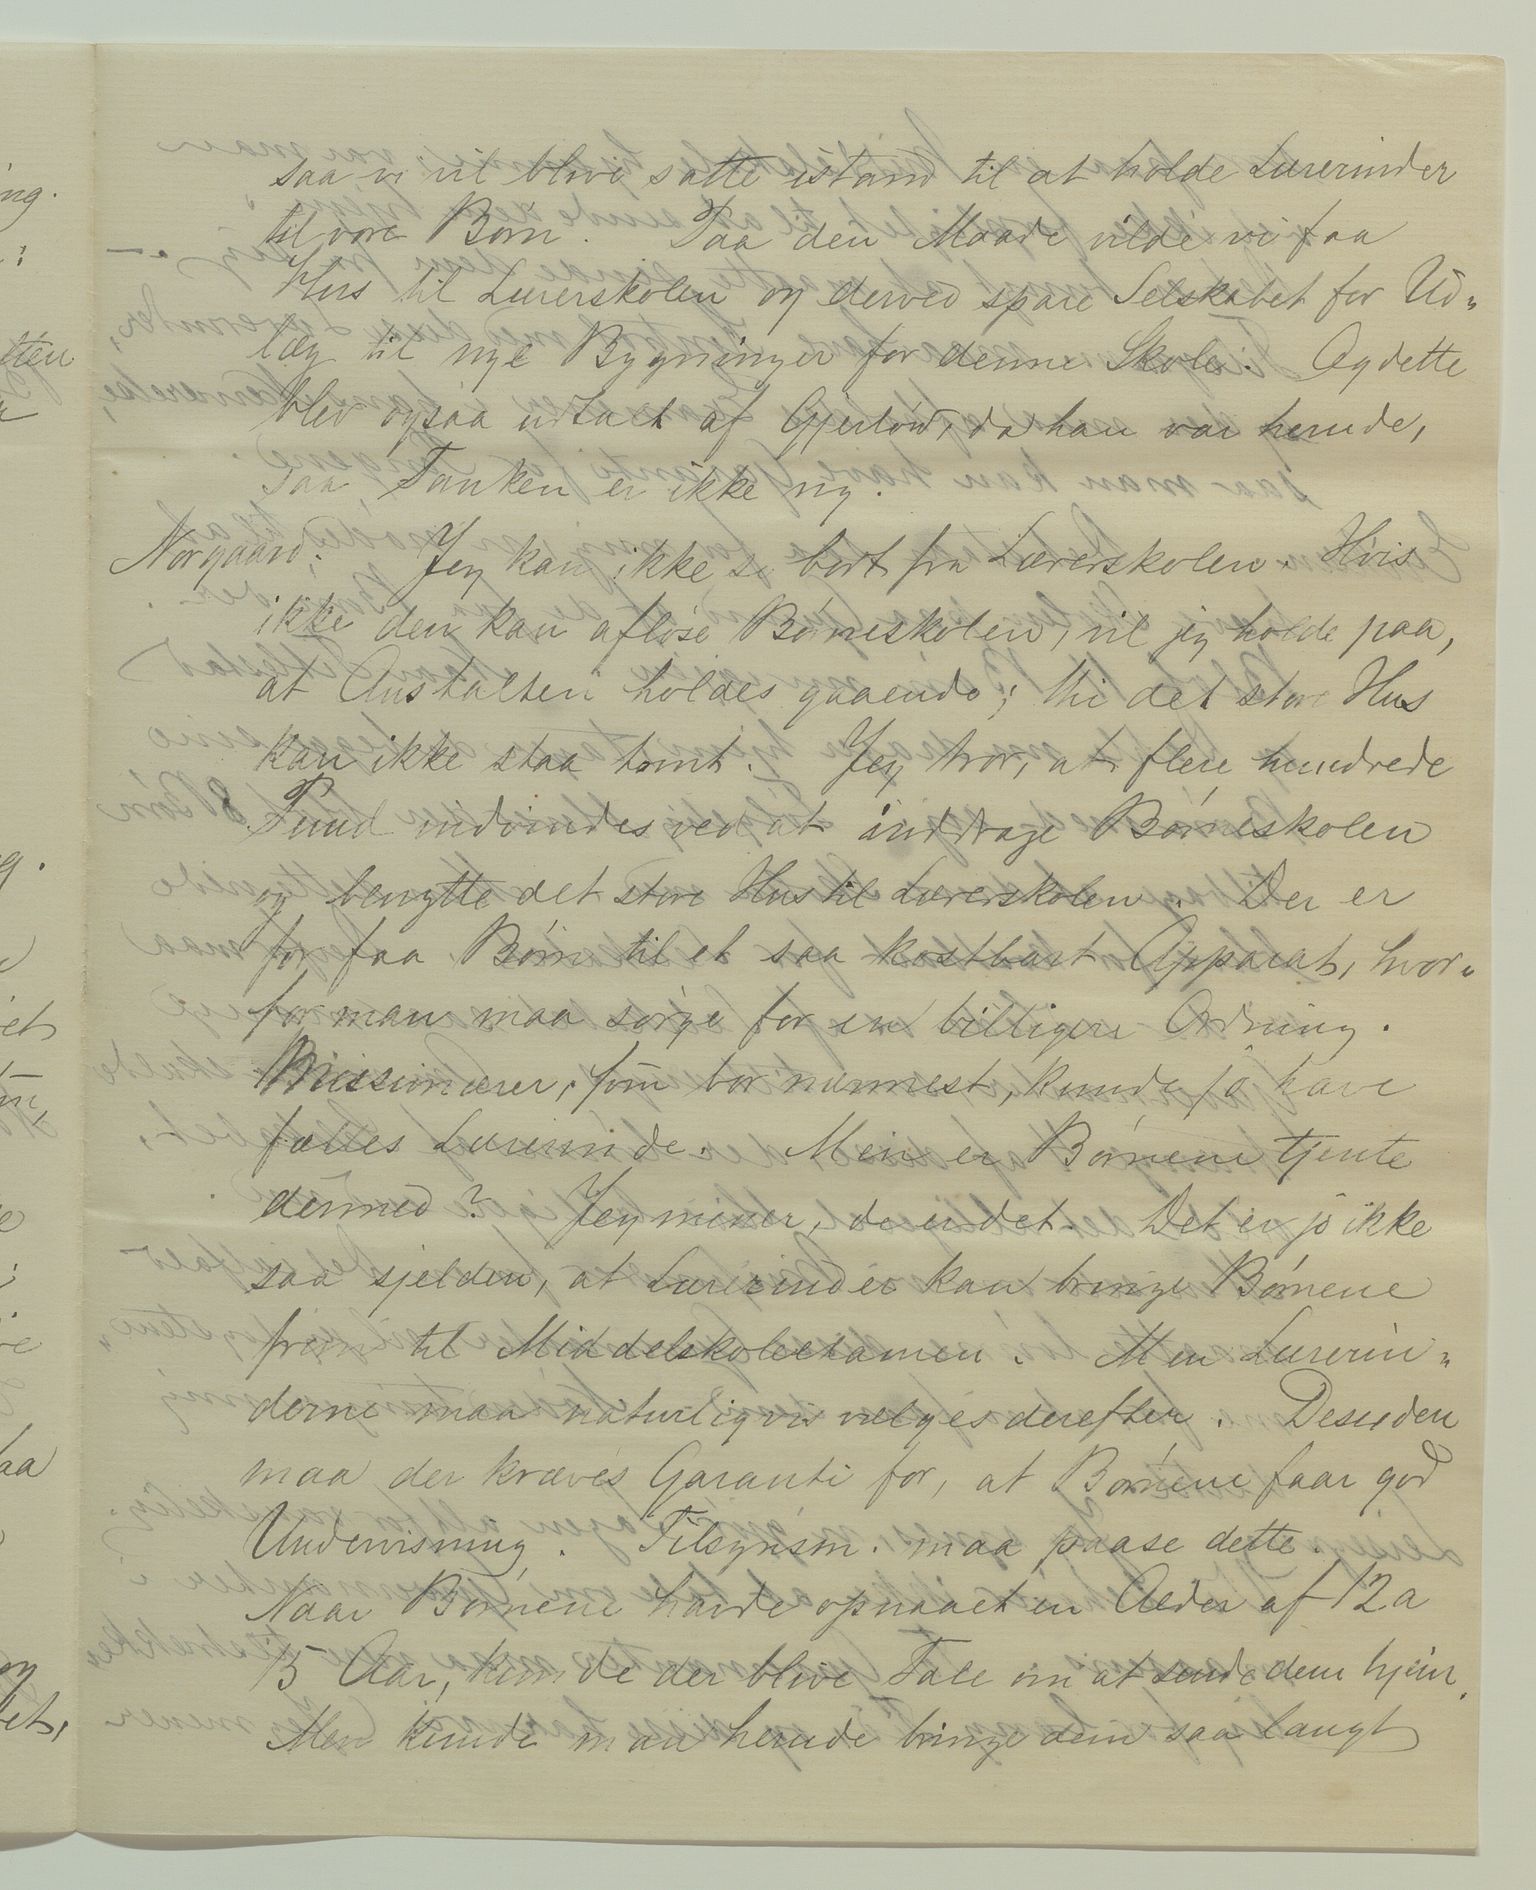 saa vi vil blive satte istand til at holde Lærerinder
til vore Børn. Paa den Maade vilde vi faa
Hus til Lærerskolen og derved spare Selskabet for Ud-
læg til nye Bygninger for denne Skole. Og dette
blev ogsaa udtalt af Gjerløw, da han var herude,
saa Tanken er ikke ny.
Nørgaard: Jeg kan ikke se bort fra Lærerskolen. Hvis
ikke den kan afløse Børneskolen, vil jeg holde paa,
at Anstalten holdes gaaende; thi det store Hus
kan ikke staa tomt. Jeg tror, at flere hundrede
Pund indvindes ved at inddrage Børneskolen
og benytte det store Hus til Lærerskolen. Der er
for faa Børn til et saa kostbart Apparat, hvor-
for man maa sørge for en billigere Ordning.
Missionærer, som bor nærmest, kunde jo have
fælles Lærerinde. Men er Børnene tjente
dermed? Jeg mener, de er det. Det er jo ikke
saa sjelden, at Lærerinder kan bringe Børnene
frem til Middelskoleexamen. Men Lærerin-
derne maa naturligvis vælges derefter. Desuden
maa der kræves Garanti for, at Børnene faar god
Undervisning. Tilsynsm. maa paase dette.
Naar Børnene havde opnaaet en Alder af 12 a
15 Aar, kunde der blive Tale om at sende dem hjem.
Men kunde man herude bringe dem saa langt